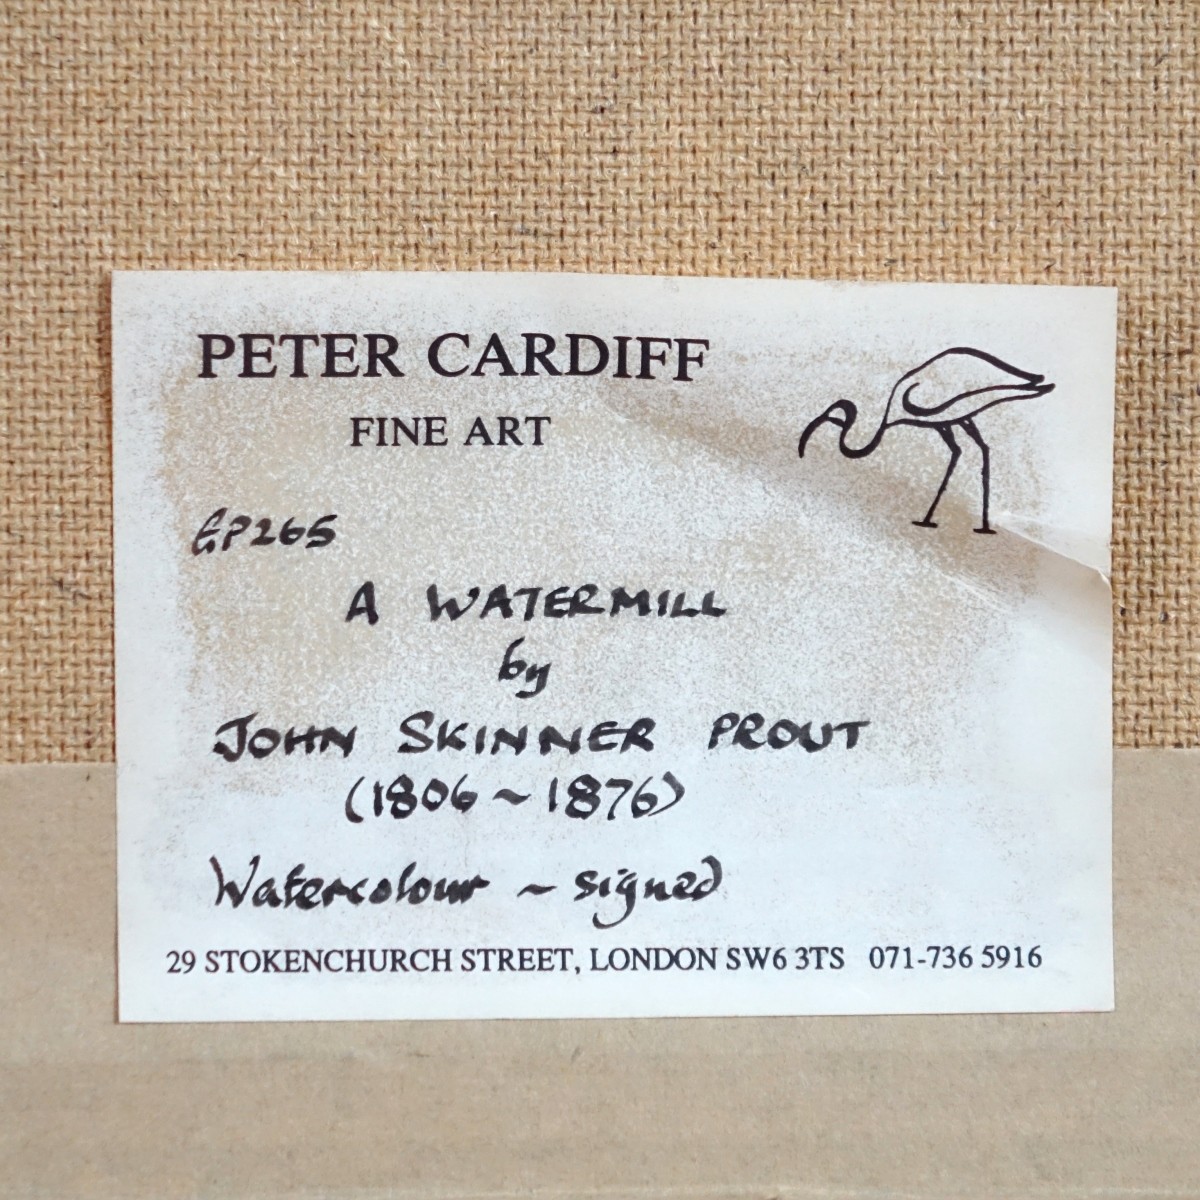 PETER CARDIFF
FINE ART
EP265
A WATERMILL
by
JOHN SKINNER PROUT
(1806 ~ 1876)
Watercolour ~ signed
29 STOKENCHURCH STREET, LONDON SW6 3TS 071-736 5916